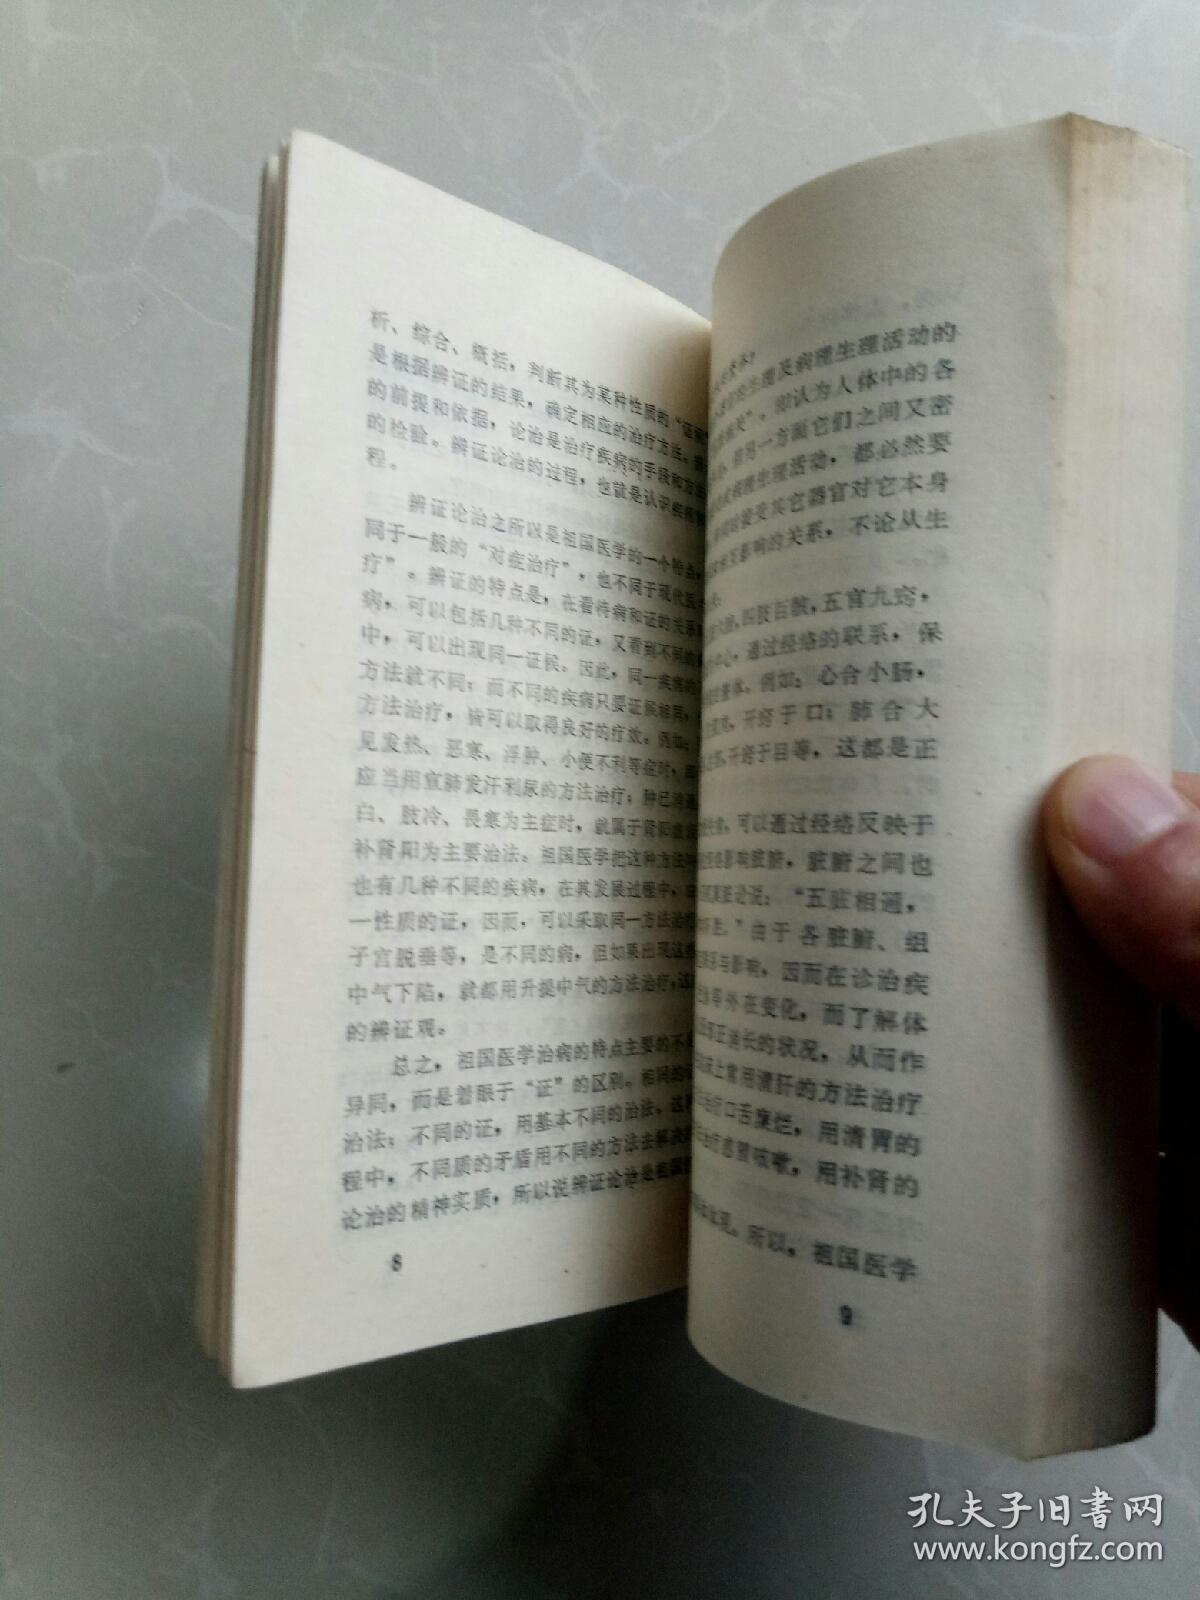 析、综合、概括，判断其为某种性质的“证
是根据辨证的结果，确定相应的治疗方法。
的前提和依据，论治是治疗疾病的手段和方
的检验。辨证论治的过程，也就是认识疾病
程。
辨证论治之所以是祖国医学的一个特点，
同于一般的“对症治疗”，也不同于现代医
疗”。辨证的特点是，在看待病和证的关系
病，可以包括几种不同的证，又看到不同的
中，可以出现同一证候。因此，同一疾病的
方法就不同；而不同的疾病只要证候相同，
方法治疗，皆可以取得良好的疗效。例如：
见发热、恶寒、浮肿、小便不利等症时，
应当用宣肺发汗利尿的方法治疗；肿已消
白、肢冷、畏寒为主症时，就属于肾阳
补肾阳为主要治法。祖国医学把这种方法
也有几种不同的疾病，在其发展过程中，
一性质的证，因而，可以采取同一方法治
子宫脱垂等，是不同的病，但如果出现这
中气下陷，就都用升提中气的方法治疗，这
的辨证观。
总之，祖国医学治病的特点主要的不
异同，而是着眼于“证”的区别。相同的
治法；不同的证，用基本不同的治法。这
程中，不同质的矛盾用不同的方法去解决
论治的精神实质，所以说辨证论治是祖国
8
整体；
生理及病理生理活动的
”。即认为人体中的各
另一方面它们之间又密
病理生理活动，都必然要
接受其它器官对它本身
互影响的关系，不论从生
四肢百骸，五官九窍，
中心，通过经络的联系，保
整体。例如：心合小肠，
肉，开窍于口；肺合大
开窍于目等，这都是正
可以通过经络反映于
影响脏腑，脏腑之间也
脏论说：“五脏相通，
”由于各脏腑、组
系与影响，因而在诊治疾
等外在变化，而了解体
正消长的状况，从而作
床上常用清肝的方法治疗
治疗口舌糜烂，用清胃的
治疗感冒咳嗽，用补肾的
体现。所以，祖国医学
9
孔夫子旧书网
www.kongfz.com